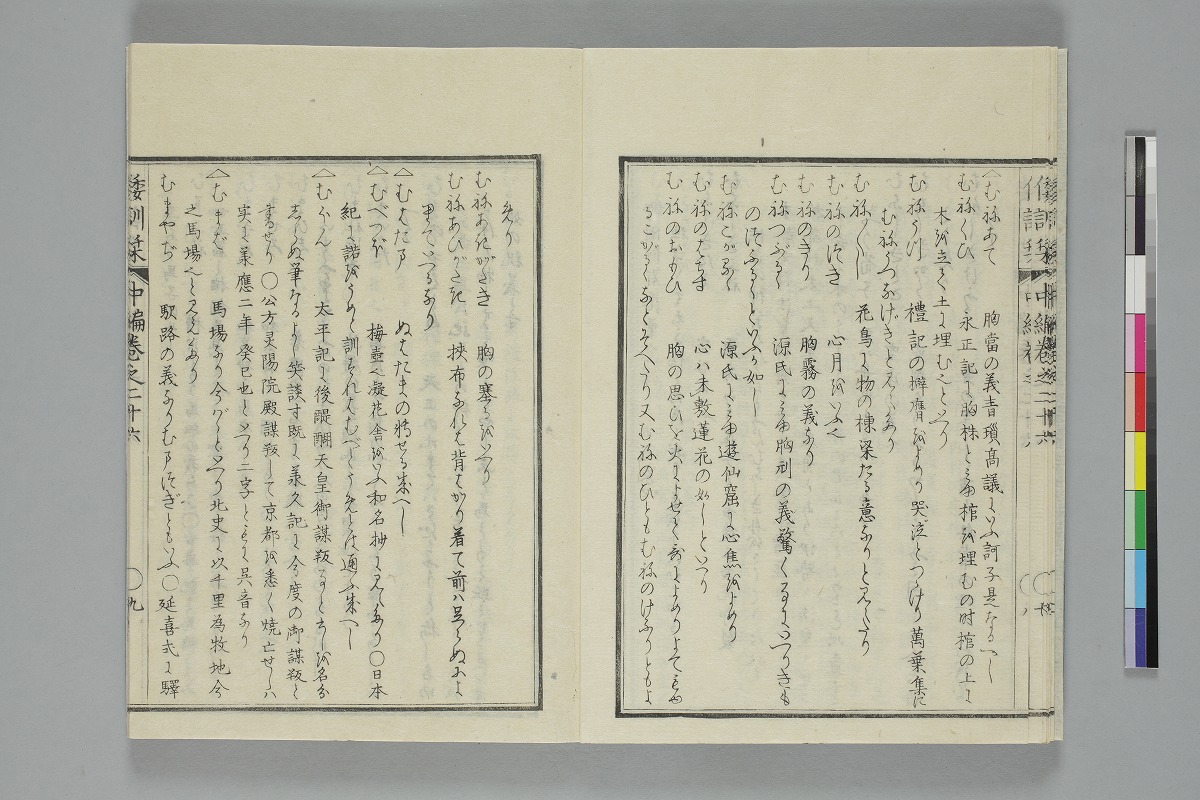 △むねあて 胸當の義青瑣高議にいふ訶子是なるへし
むねくひ 永正記に胸株とみゆ棺を埋むの时棺の上に
木を立て土に埋むといへり
むねうつ 禮記の擗膺をよめり哭泣とつけり萬葉集に
むねうつなげきとも見えたり
むね〳〵し 花鳥に物の棟梁たる意なりと見えたり
むねのつき 心月をいふ
むねのきり 胸霧の義なり
むねつぶるゝ 源氏にみゆ胸利の義驚くるにいへりきも
のつぶるゝといふか如し
むねこがるゝ 源氏にみゆ遊仙窟に心焦をよめり
むねのはちす 心ハ未敷蓮花の如しといへり
むねのおもひ 胸の思ひを火によせて歌によめりよてもゆ
るこかるゝなとそへたり又むねのひともむねのけふりともよ
めり
むねあきがたき 胸の塞るをいへり
むねあひがたき 挾布なれは背はかり着て前ハ足らぬによ
せていへるなり
△むはたま ぬはたまの轉せる成へし
△むべつぼ 梅壺ハ凝花舎をいふ和名抄に見えたり〇日本
紀に諾をうめと訓すれはむべとうめとは通ふ成へし
△むほん 太平記に後醍醐天皇御謀叛
しらぬ筆なるよし笑談す既に承久記に今度の御謀叛と
書るせり 〇公方灵陽院殿謀叛して京都を悉く焼亡せしハ
実に承應二年癸巳也といへり二字ともに呉音なり
△むまば 馬場なり今ばゞといへり北史に以千里為牧地今
之馬場也と見えたり
むまやぢ 駅路の義なりむまつぎともいふ〇延喜式に驛
倭訓栞 中編卷之二十六 〇九